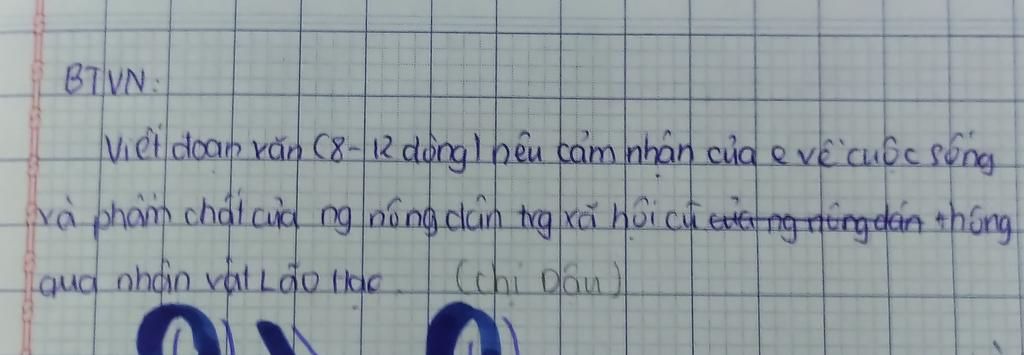 BTVN:
Viết đoạn văn (8-12 dòng) nêu cảm nhận của e về cuộc sống
và phẩm chất của ng nông dân trg xã hội cũ của ng nông dân thông
qua nhân vật Lão Hạc. (chị Dậu)